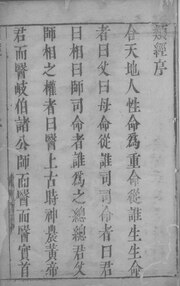 類經序
合天地人性命為重命從誰生生命
者曰父曰母命從誰司司命者曰君
曰相曰師司命者誰為之總總君父
師相之權者曰醫上古時神農黃帝
君而醫岐伯諸公師而醫而醫實首